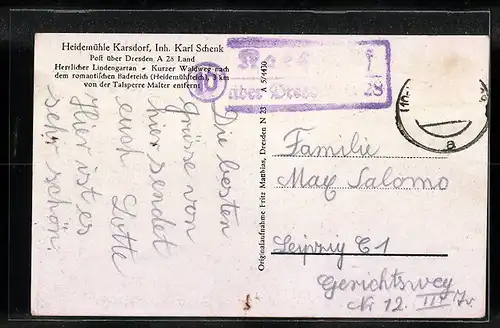 Heidemühle Karsdorf, Inh. Karl Schenk
Post über Dresden A 28 Land
Herrlicher Lindengarten - Kurzer Waldweg nach
dem romantischen Badeteich (Heidemühlteich), km
von der Talsperre Malter entfernt
über Dresden 28
Die besten
Grüsse von
hier sendet
euch Lotte
Hier ist es
sehr schön.
Originalaufnahme Fritz Matthias, Dresden N 23 A 5/4430
a
Familie
Max Salomo
Leipzig C 1
Gerichtsweg
Nr 12. III